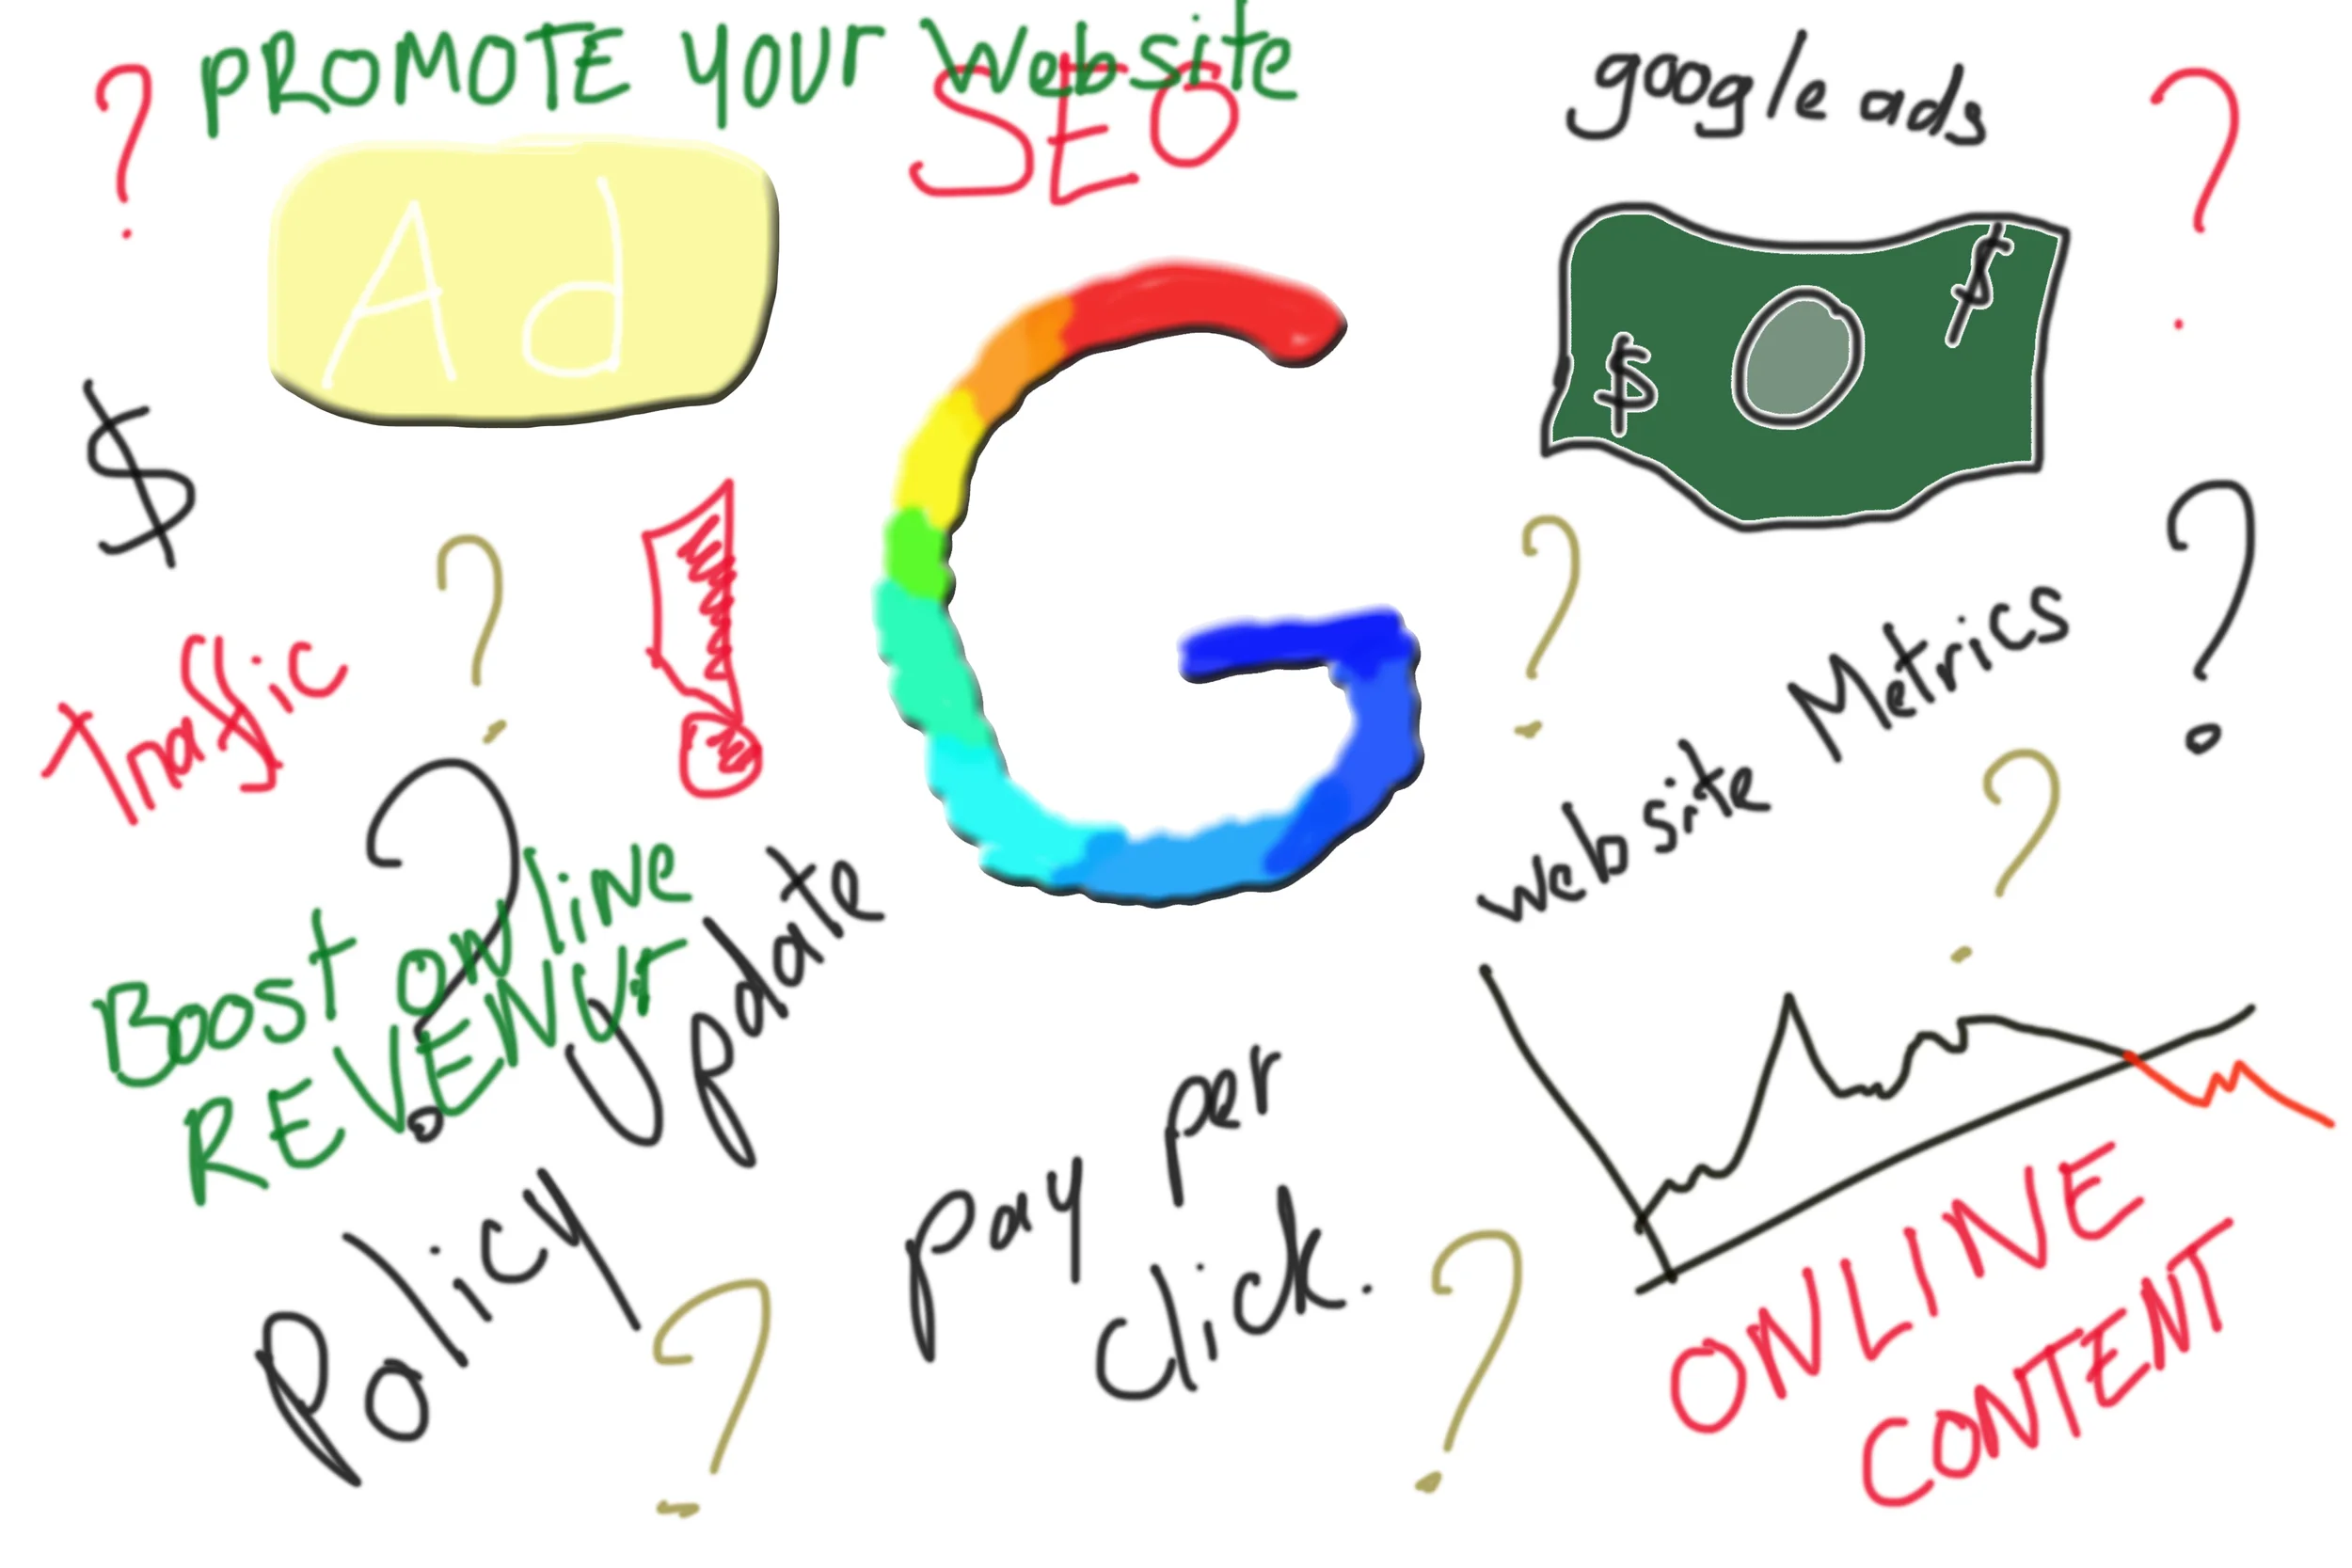 PROMOTE YOUR website
SEO
google ads
?
?
Ad
$
$
$
G
?
?
?
!
Traffic
website Metrics
?
?
Boost online
REVENUr
Policy Update
pay per
click.
ONLINE
CONTENT
?
?